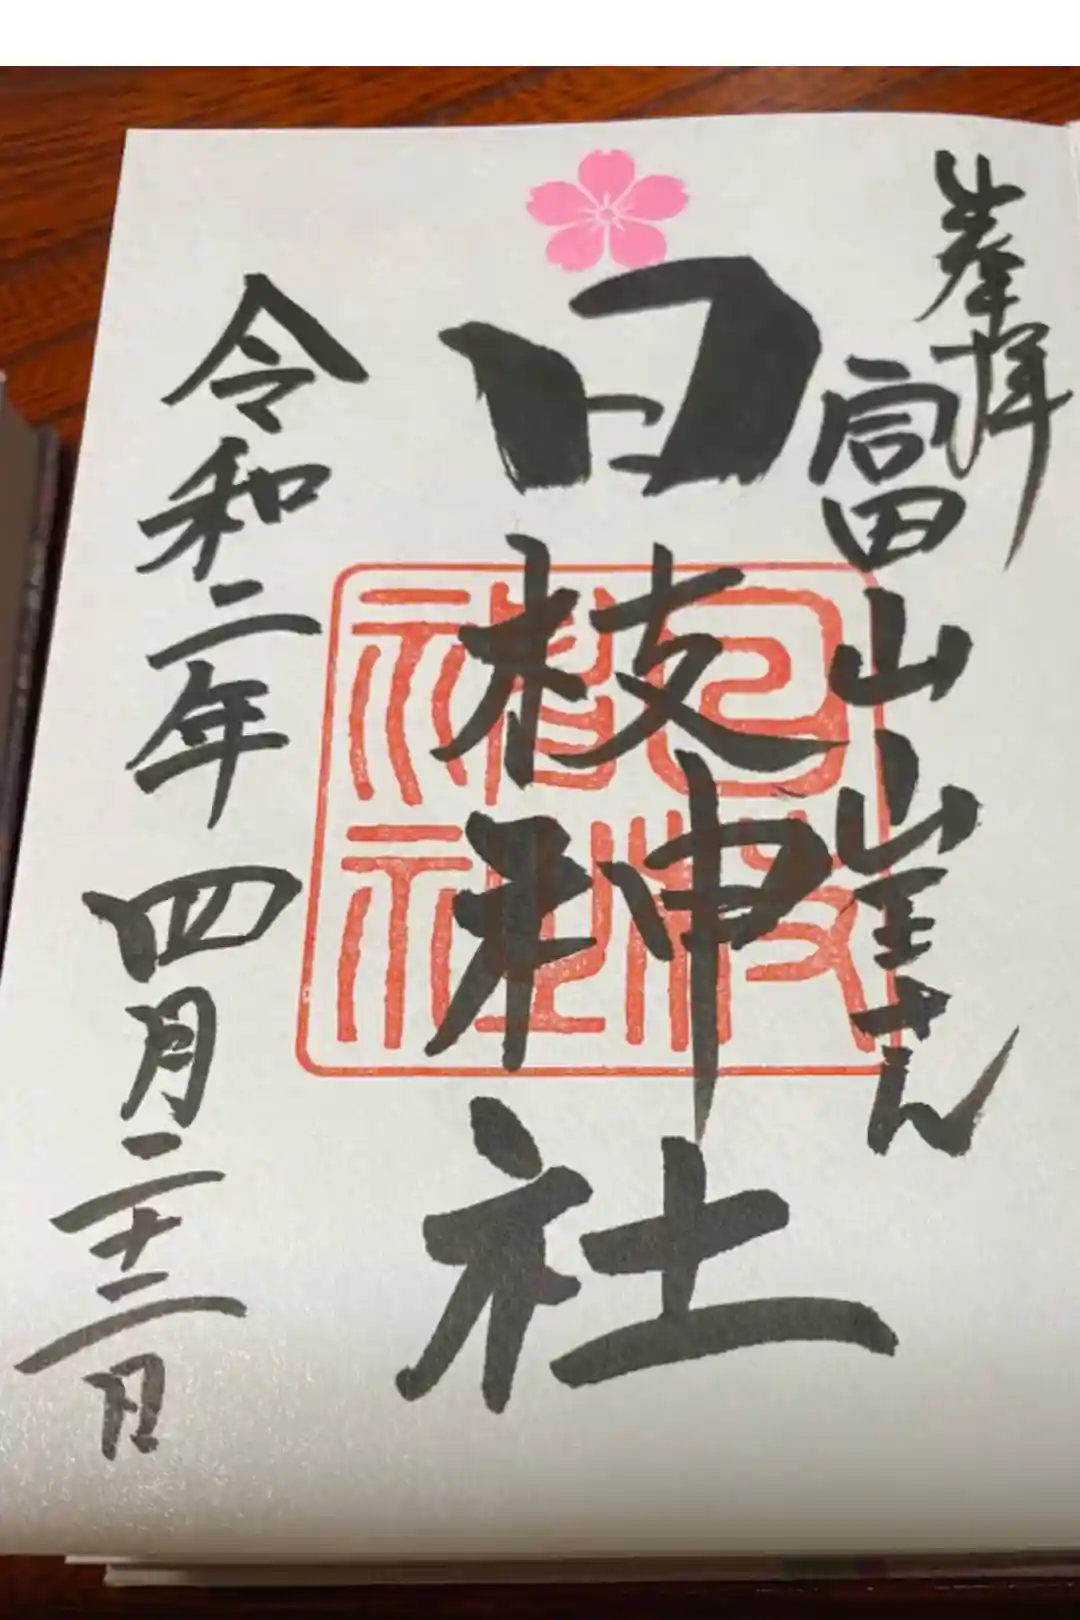 奉拝
富山山王さん
日枝神社
令和二年四月二十二日
日枝
神社